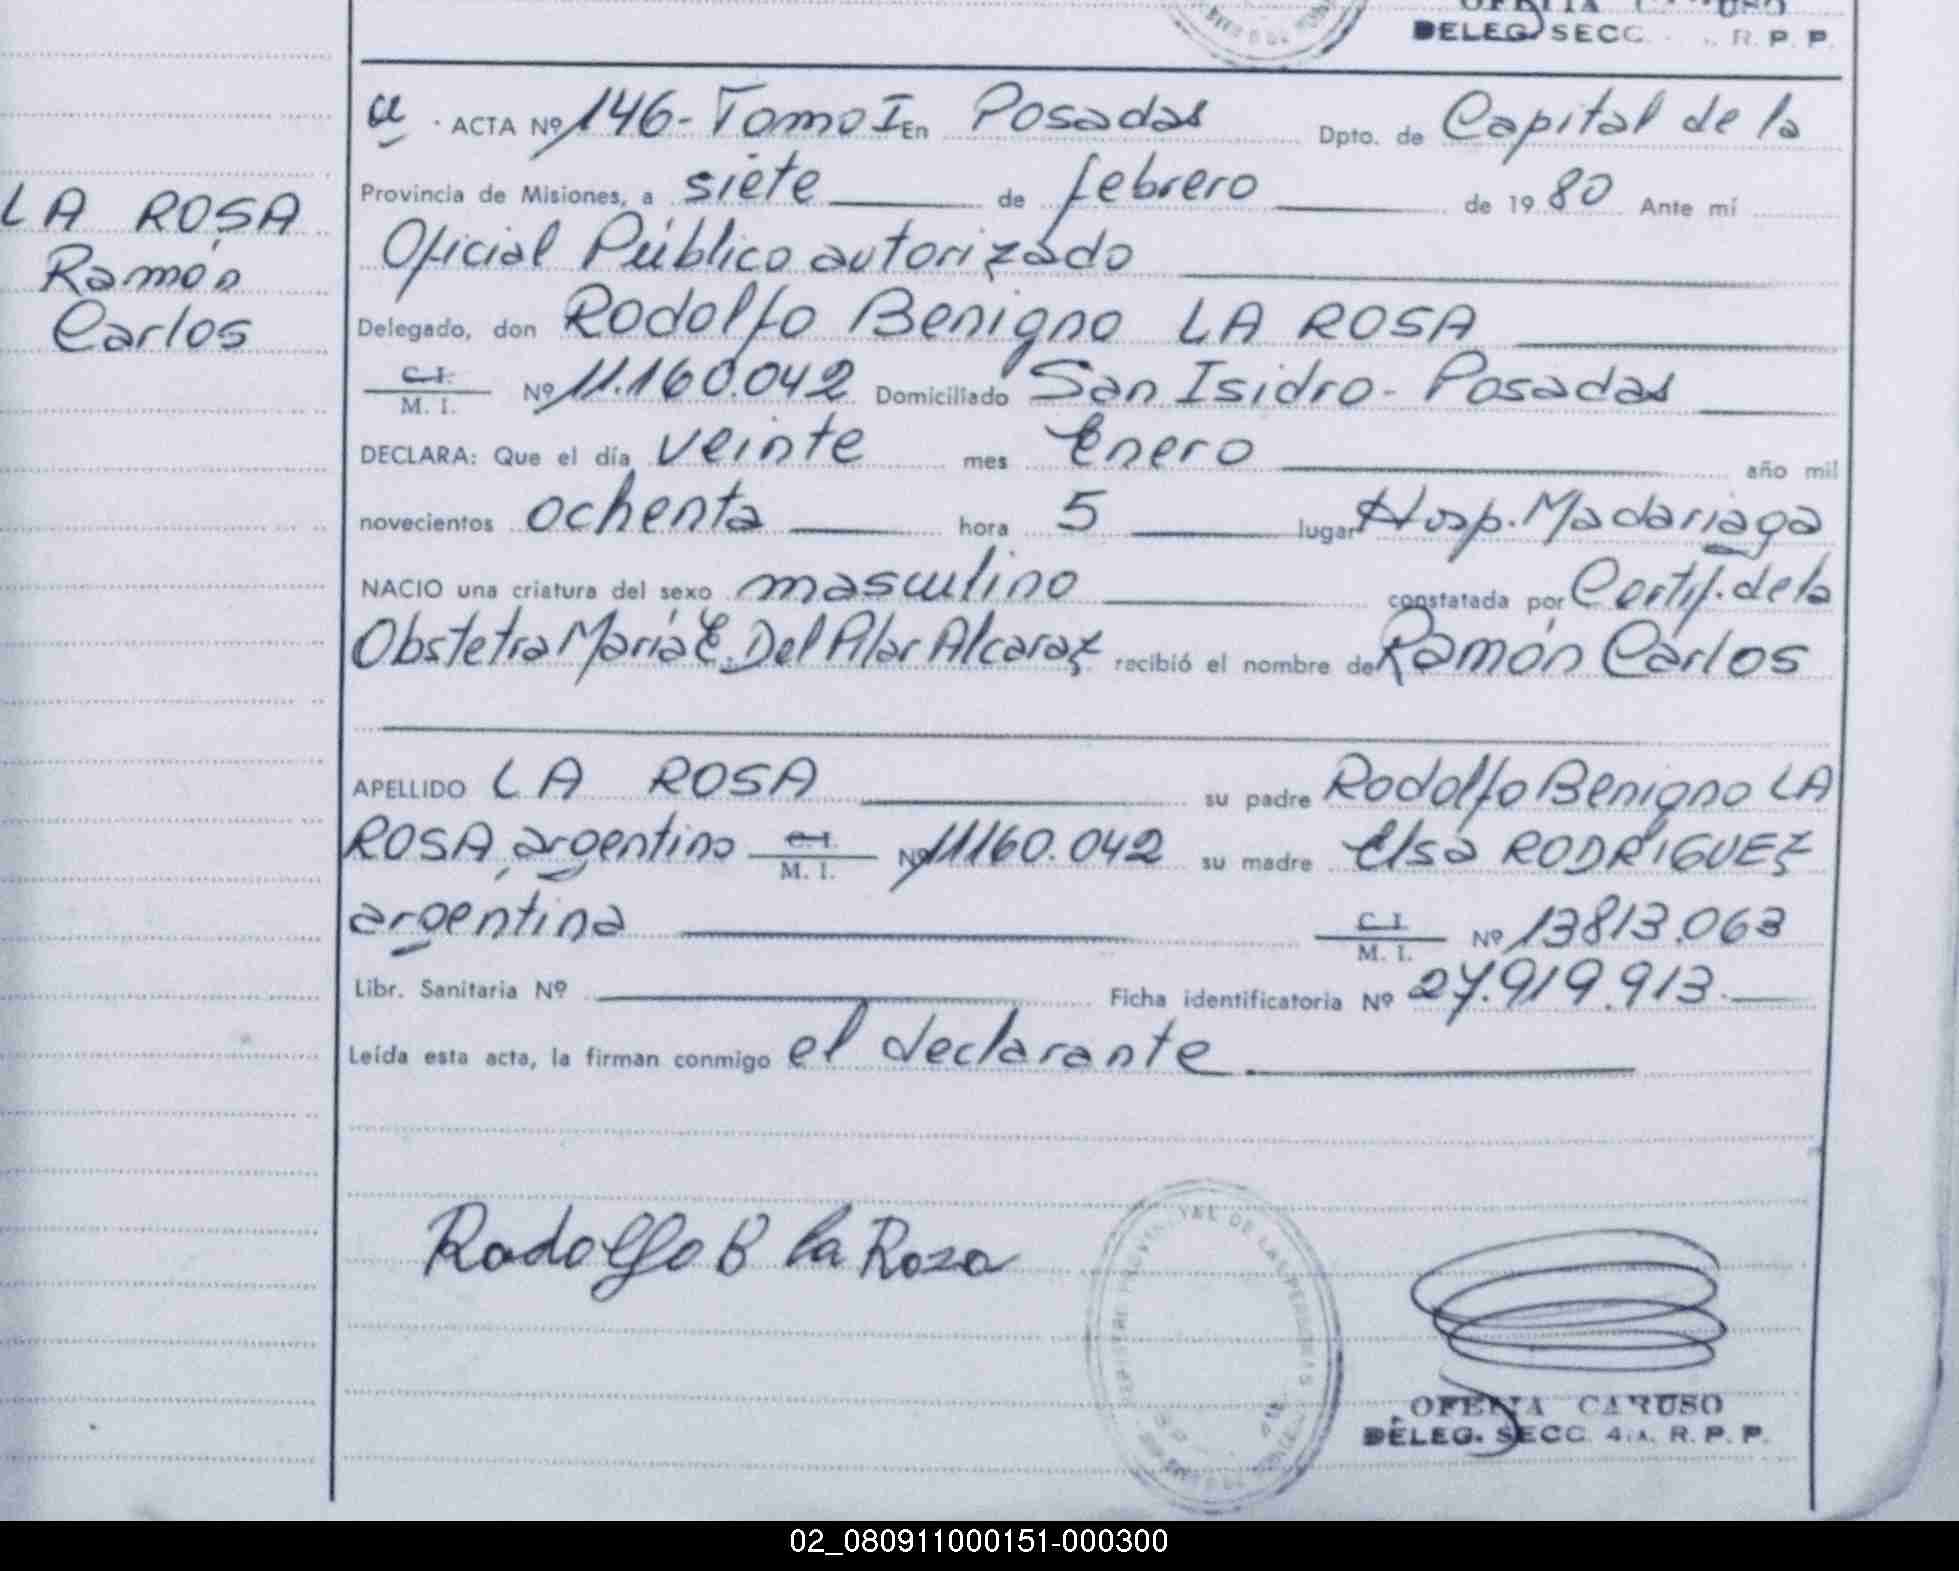 DELEG. SECC. R. P. P.
ACTA Nº 146 - Tomo I En Posadas Dpto. de Capital de la
Provincia de Misiones, a siete de febrero de 1980 Ante mí
Oficial Público autorizado
Delegado, don Rodolfo Benigno LA ROSA
C. I.
M. I. Nº 11.160.042 Domiciliado San Isidro - Posadas
DECLARA: Que el día veinte mes Enero año mil
novecientos ochenta hora 5 lugar Hosp. Madariaga
NACIO una criatura del sexo masculino constatada por Certif. de la
Obstetra María E. Del Pilar Alcaraz recibió el nombre de Ramón Carlos
APELLIDO LA ROSA su padre Rodolfo Benigno LA
ROSA, argentino C. I. M. I. Nº 11160.042 su madre Elsa RODRIGUEZ
argentina C. I. M. I. Nº 13813.063
Libr. Sanitaria Nº Ficha identificatoria Nº 27.919.913.
Leída esta acta, la firman conmigo el declarante
LA ROSA
Ramón
Carlos
Rodolfo B la Rosa
OFELIA CARUSO
DELEG. SECC. 4.A. R. P. P.
02_080911000151-000300